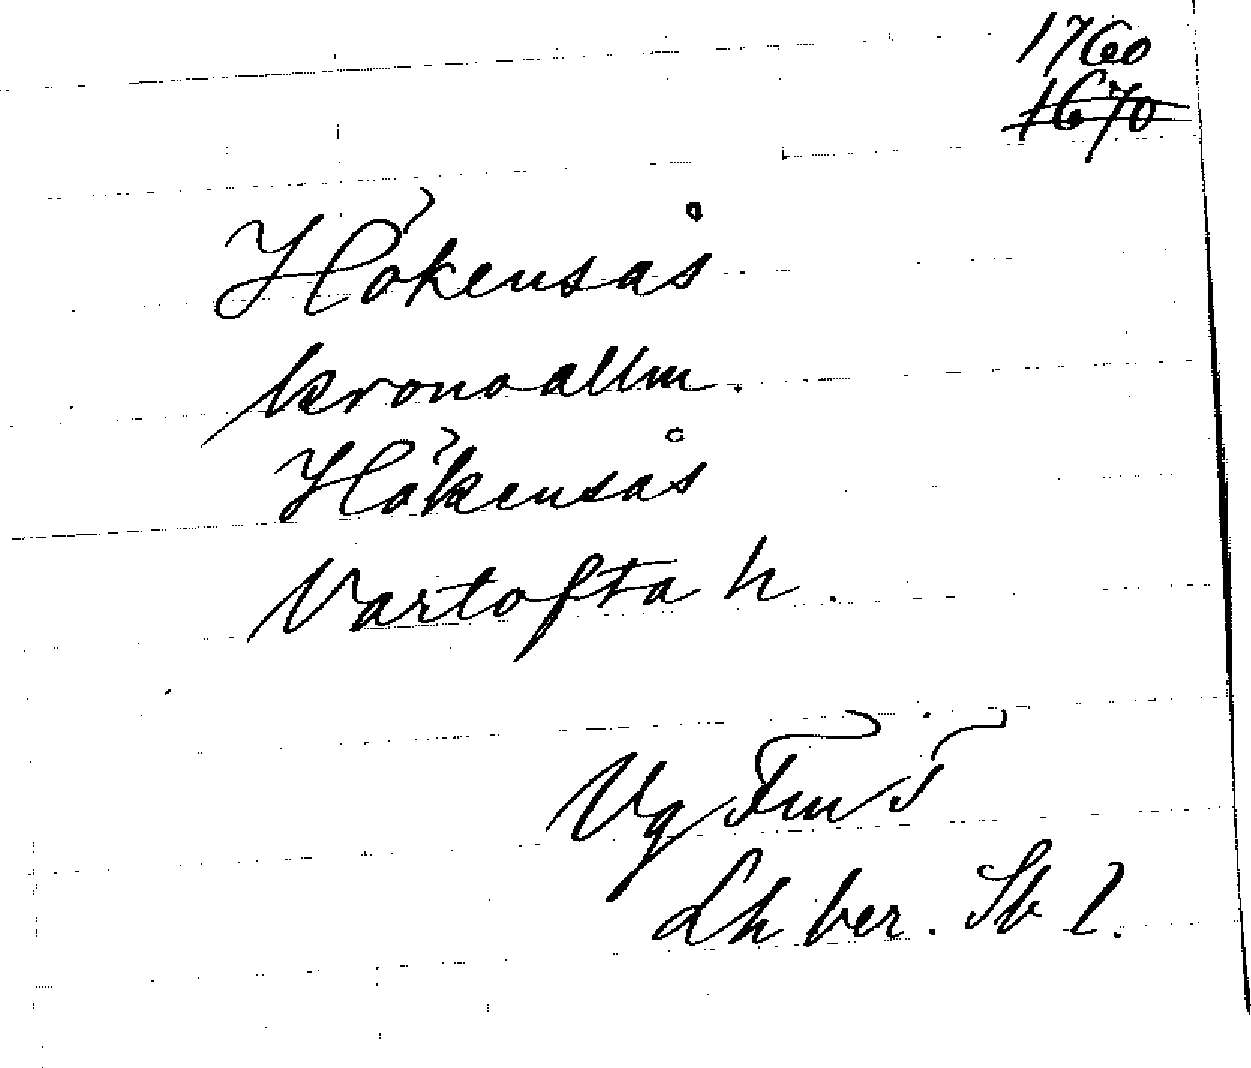 1760
1670
Hökensås
kronoallm.
Hökensås
Vartofta h.
Vg
Lh ber. Sb 2.